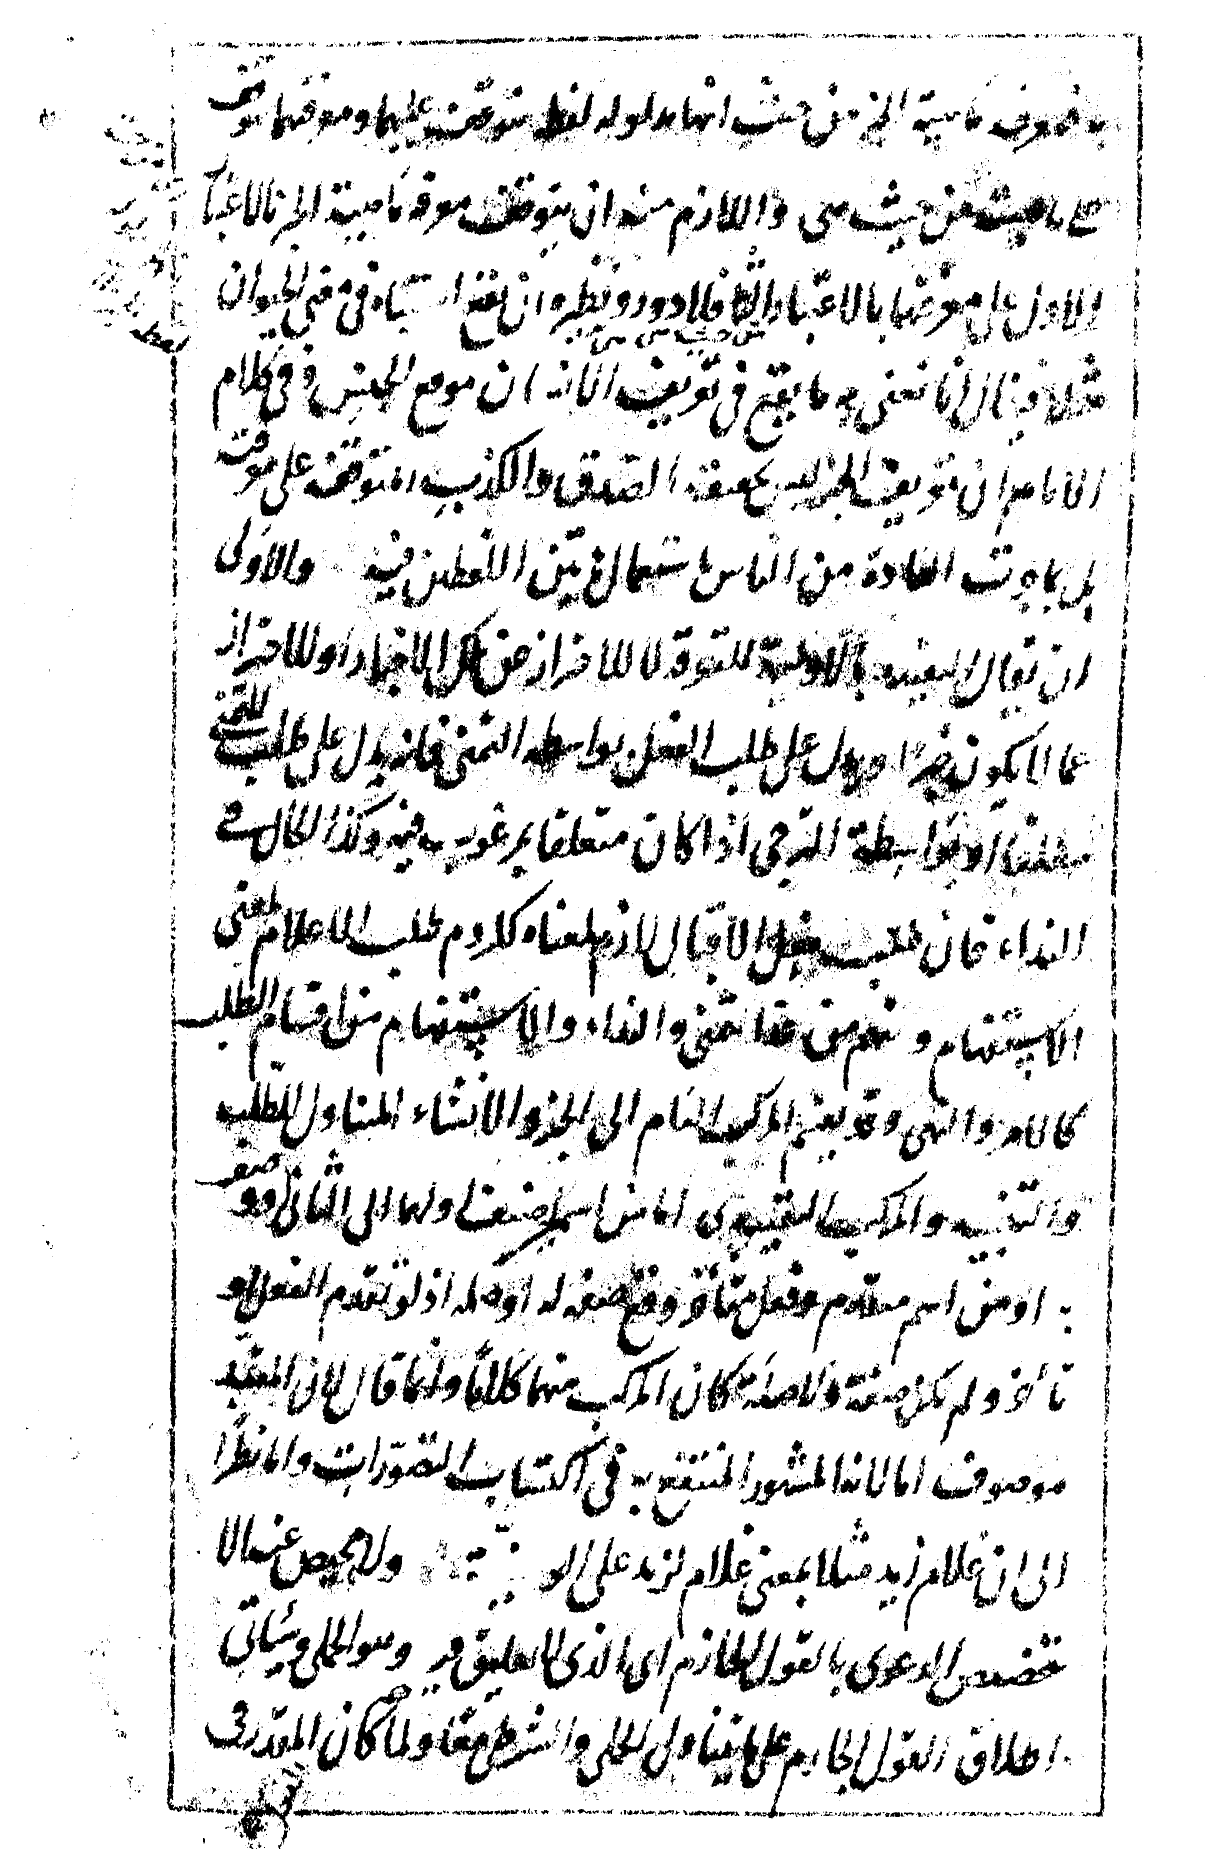 به فمعرفة ماهية الخبر من حيث انها مدلوله لفظ يتوقف عليها ومعرفتها يتوقف
على ماهيته من حيث هي واللازم منه ان يتوقف معرفة ماهية الخبر بالاعتبار
الاول على معرفتها بالاعتبار الثاني فلا دور ونظيره ان يقع اشتباه في معنى الحيوان
من حيث هي هي
مثلا فيقال انا نعنى به ما يقع في تعريف الانسان موقع الجنس وفي كلام
الامام ان تعريف الخبر ليس بحقيقة الصدق والكذب المتوقف على معرفته
بل بما جرت العادة من الناس باستعمال هاتين اللفظين فيه والاولى
ان يقال التقييد بالاولية للتوقة لا للاحتراز عن كل الاخبار او للاحتراز
عما لا يكون خبرا ويدل على طلب الفعل بواسطة التمنى فانه يدل على طلب المتمنى
مطلقا او بواسطة الترجى اذا كان متعلقا بمرغوب فيه وكذا الحال في
النداء فان طلب فعل الاقبال لازم لمعناه كلزوم طلب الاعلام لمعنى
الاستفهام ومنهم من عد التمنى والنداء والاستفهام من اقسام الطلب
كالامر والنهى وقد يقسم المركب التام الى الخبر والانشاء المتناول للطلب
والتنبيه والمركب التقييدى اما من اسمين اضيف اولهما الى الثانى او وصف
به او من اسم متقدم وفعل متأخر وقع صفة له او صلة اذ لو تقدم الفعل او
تأخر ولم يكن صفة ولا صلة كان المركب منهما كلاما وانما قال لان المقيد
موصوف اما لانه المشهور المنتفع به في اكتساب التصورات واما نظرا
الى ان غلام زيد مثلا بمعنى غلام لزيد على ولا محيص عنه الا
تخصيص الدعوى بالقول الجازم اى الذى لا تعليق فيه وهو الحملى وسيأتى
اطلاق القول الجازم على ما يتناول الحملى والشرطى معا ولما كان المقدر في